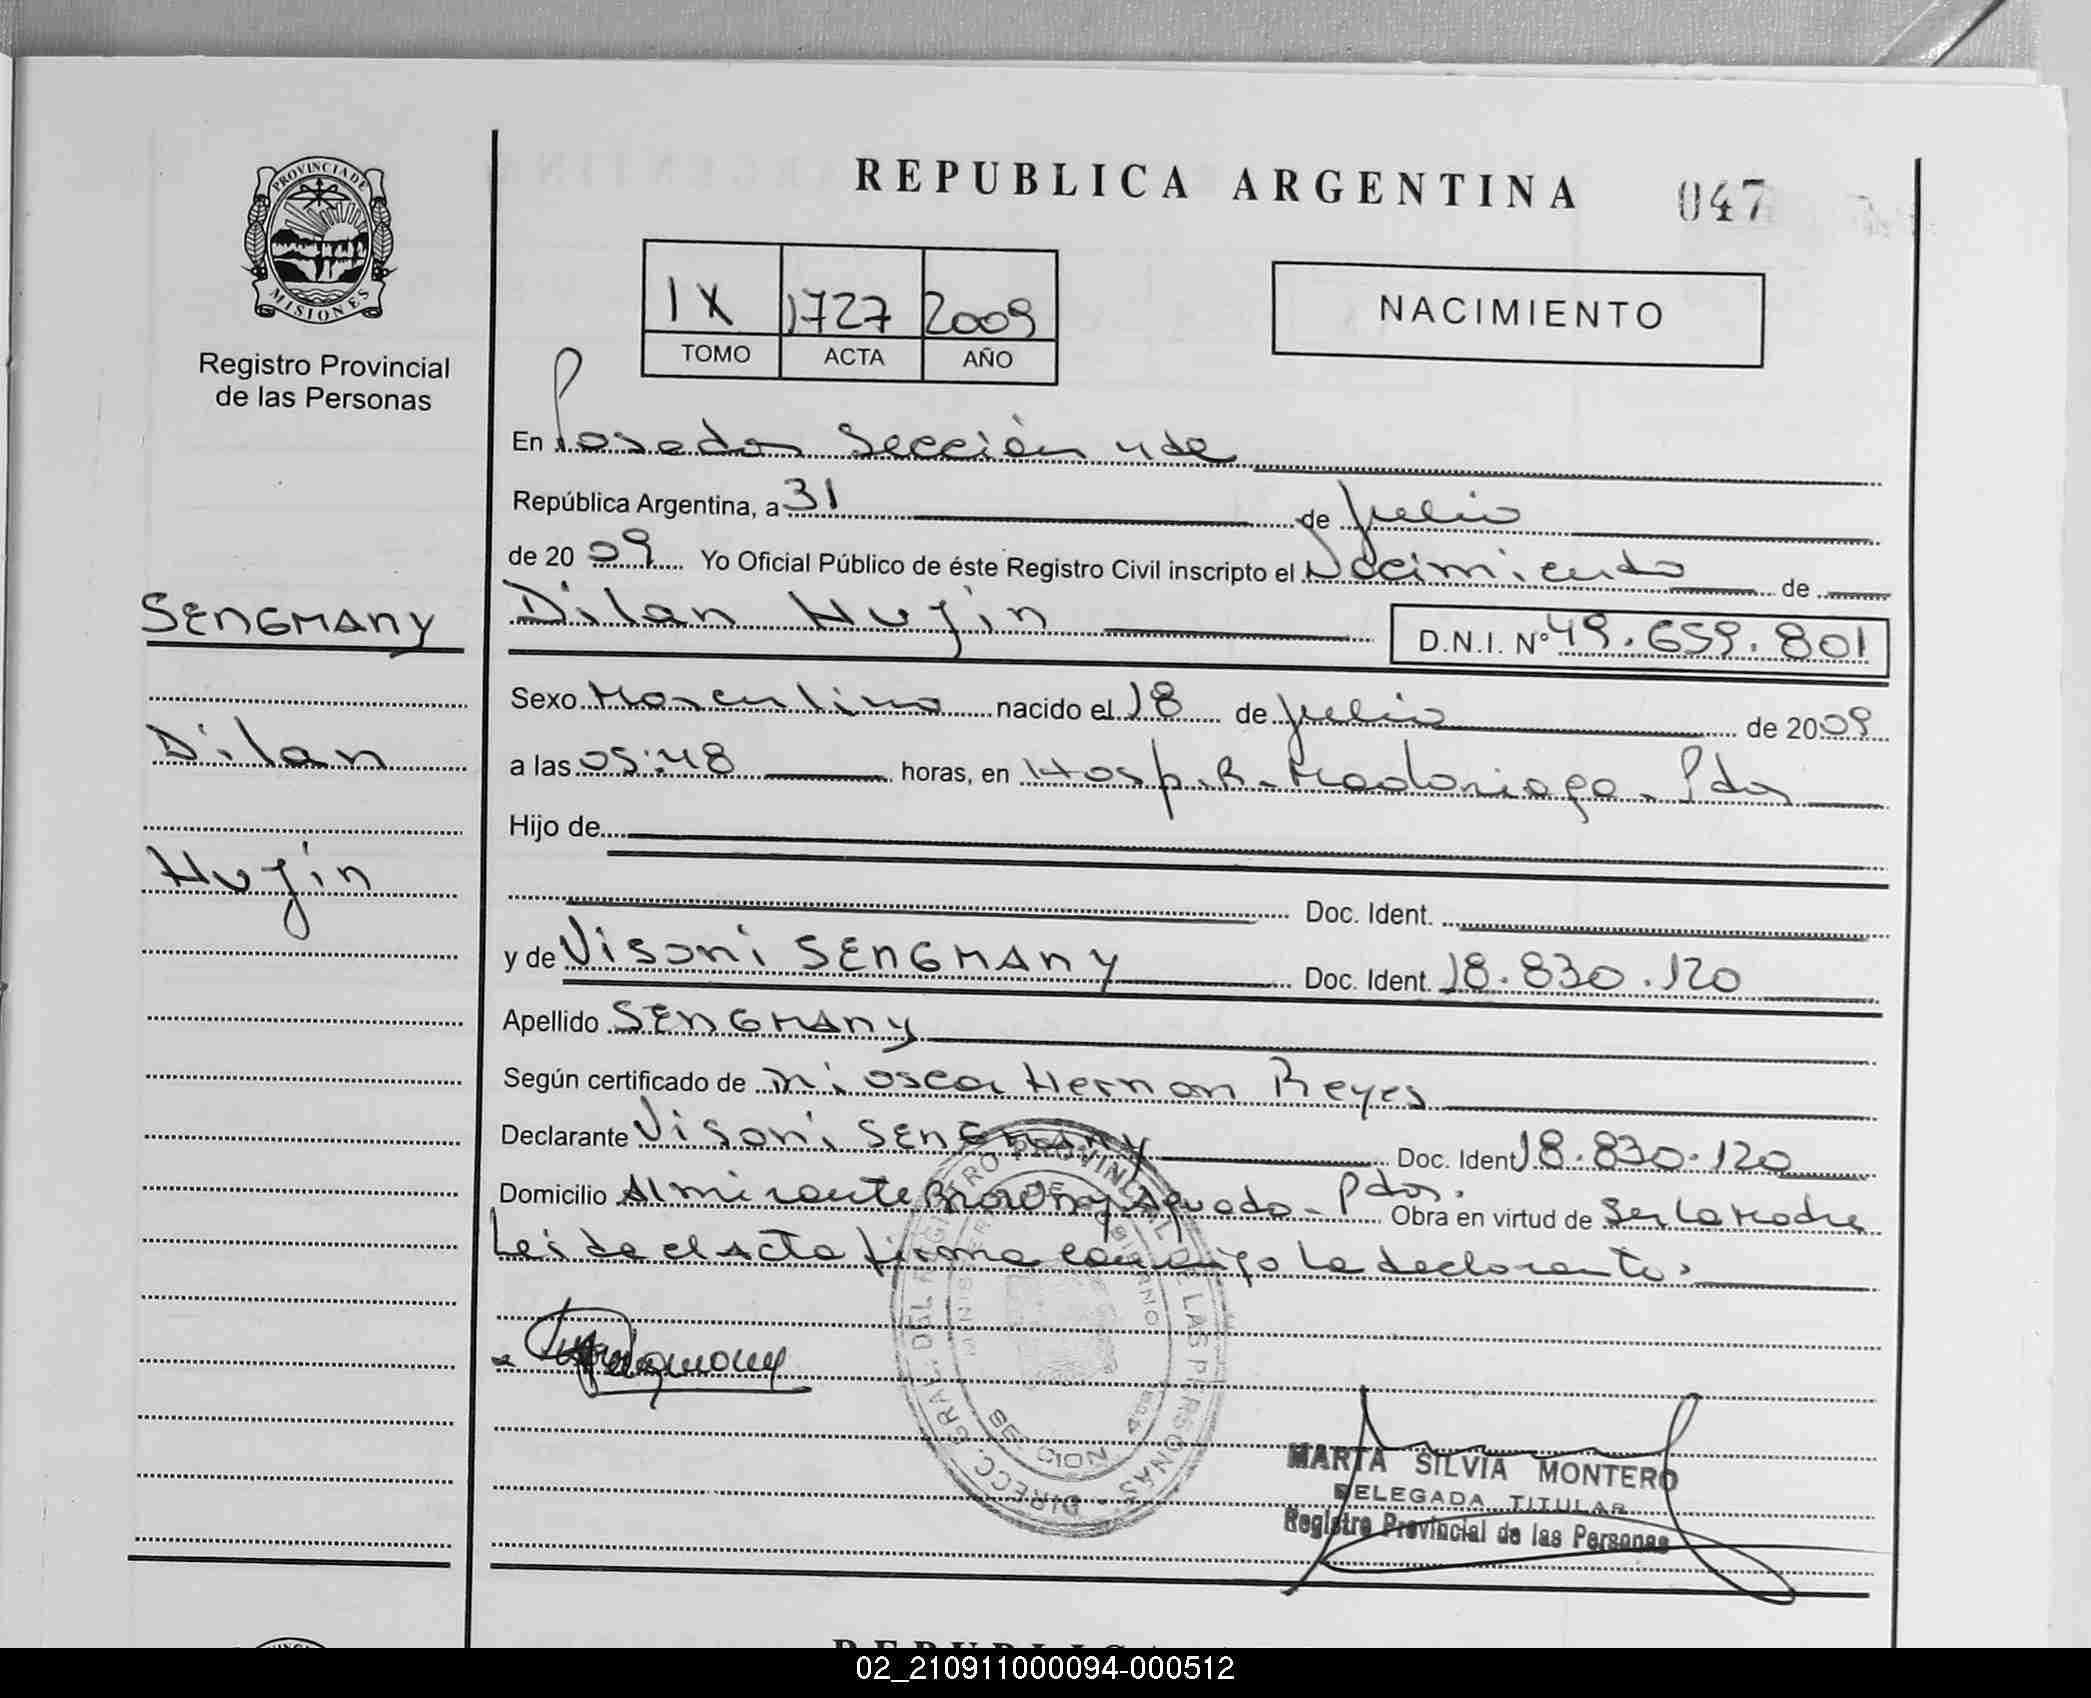 REPUBLICA ARGENTINA 047
PROVINCIA DE
MISIONES
Registro Provincial
de las Personas
IX 1727 2009
TOMO ACTA AÑO
NACIMIENTO
En Posadas Sección 4ta
República Argentina, a 31 de Julio
de 2009 Yo Oficial Público de éste Registro Civil inscripto el Nacimiento de
SENGMANY
Dilan Hujin D.N.I. Nº 49.659.801
Sexo Masculino nacido el 18 de Julio de 2009
Dilan
a las 05:48 horas, en Hosp. R. Madariaga - Pdas
Hijo de
Hujin
Doc. Ident.
y de Visoni SENGMANY Doc. Ident. 18.830.120
Apellido SENGMANY
Según certificado de Oscar Hernan Reyes
Declarante Visoni SENGMANY Doc. Ident 18.830.120
Domicilio Almirante Brown y Aguado - Pdas. Obra en virtud de Ser la Madre
Leida el Acta firma conmigo la declarante.
DIRECC. GRAL. DEL REGISTRO PROVINCIAL DE LAS PERSONAS
MARTA SILVIA MONTERO
DELEGADA TITULAR
Registro Provincial de las Personas
02_210911000094-000512